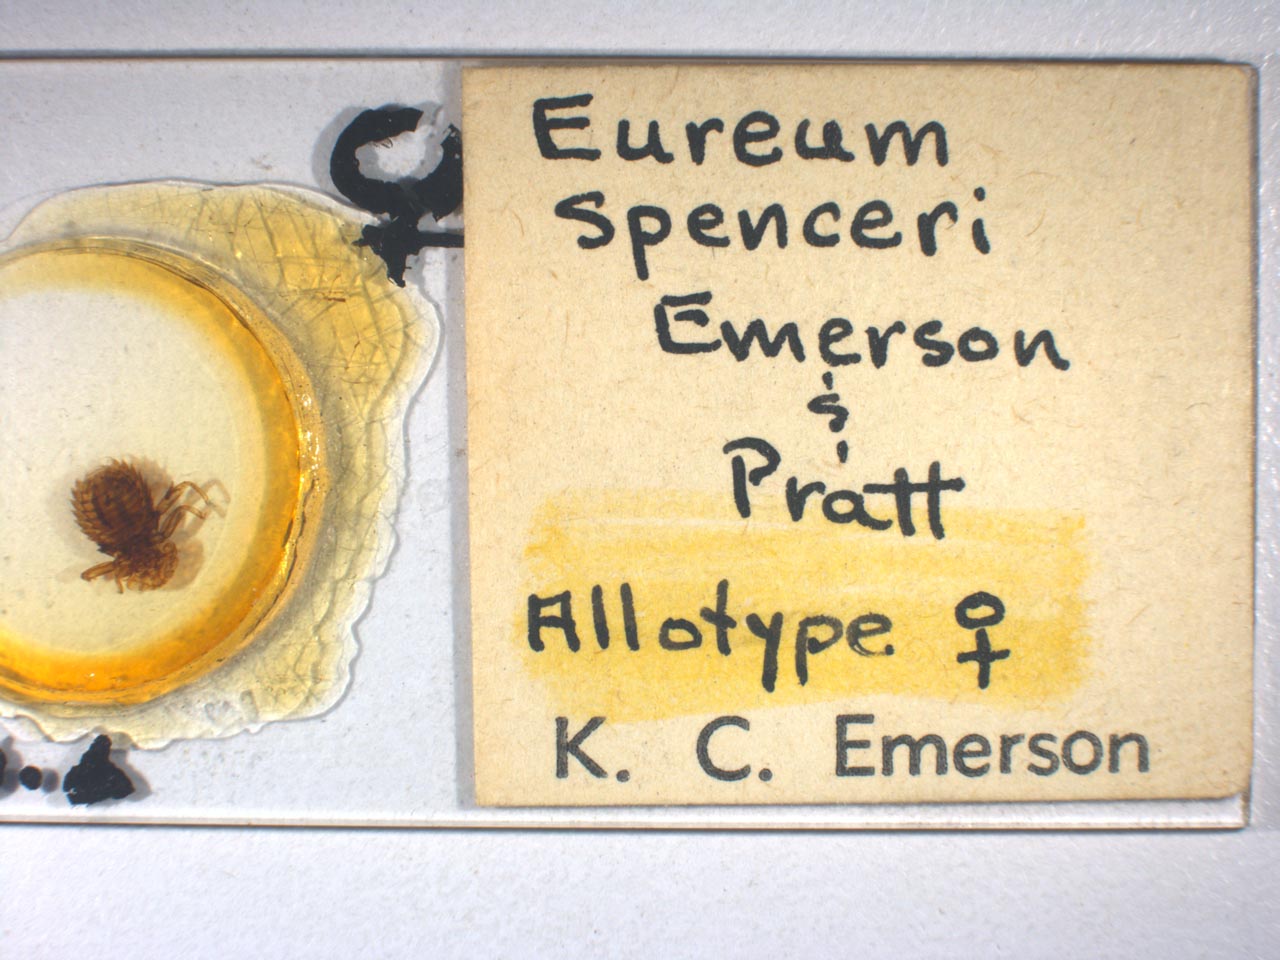 Eureum
spenceri
Emerson
&
Pratt
Allotype ♀
K. C. Emerson